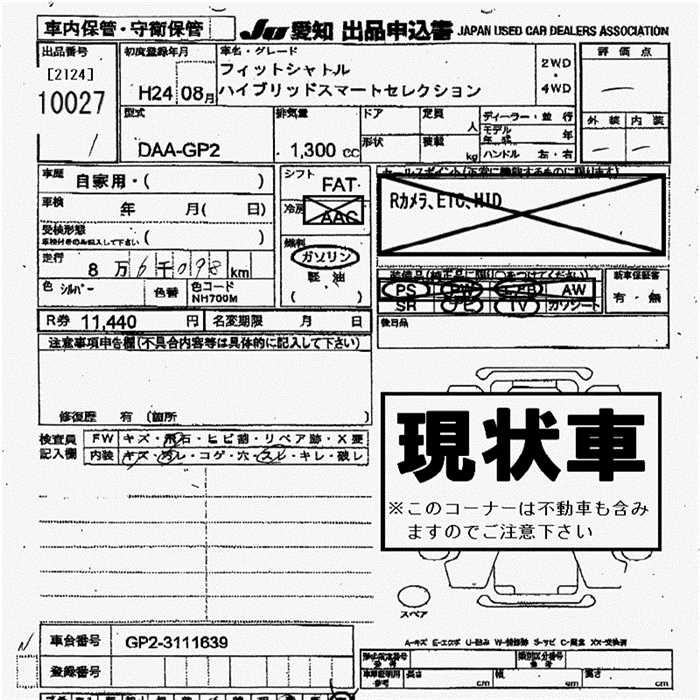 車内保管・守衛保管
JU 愛知 出品申込書 JAPAN USED CAR DEALERS ASSOCIATION
出品番号 初度登録年月 車名・グレード 評価点
[2124] フィットシャトル 2WD
10027 H24 08月 ハイブリッドスマートセレクション 4WD
型式 排気量 ドア 定員 人 ディーラー・並行 外装 内装
モデル年式 年
DAA-GP2 1,300 cc 形状 積載 kg ハンドル 左・右
車歴 自家用・( ) シフト FAT セールスポイント(正常に機能するものに限ります)
車検 年 月( 日) 冷房 AAC Rカメラ、ETC、HID
受検形態 ( ) 燃料 ガソリン
車検付きのみ記入して下さい
走行 8万6千098km 軽油 装備品(純正品に限り○をつけてください) 新車保証書
色 シルバー 色替 色コード NH700M ( ) PS PW AW 有・無
SR ナビ TV カワシート
R券 11,440 円 名変期限 月 日 後日品
注意事項申告欄(不具合内容等は具体的に記入して下さい)
修復歴 有 (箇所 )
検査員 FW キズ・飛石・ヒビ割・リペア跡・X要
記入欄 内装 キズ・汚レ・コゲ・穴・スレ・キレ・破レ
現状車
※このコーナーは不動車も含み
ますのでご注意下さい
スペア
車台番号 GP2-3111639
登録番号
型式指定番号 類別区分番号
長さ cm 幅 cm 高さ cm